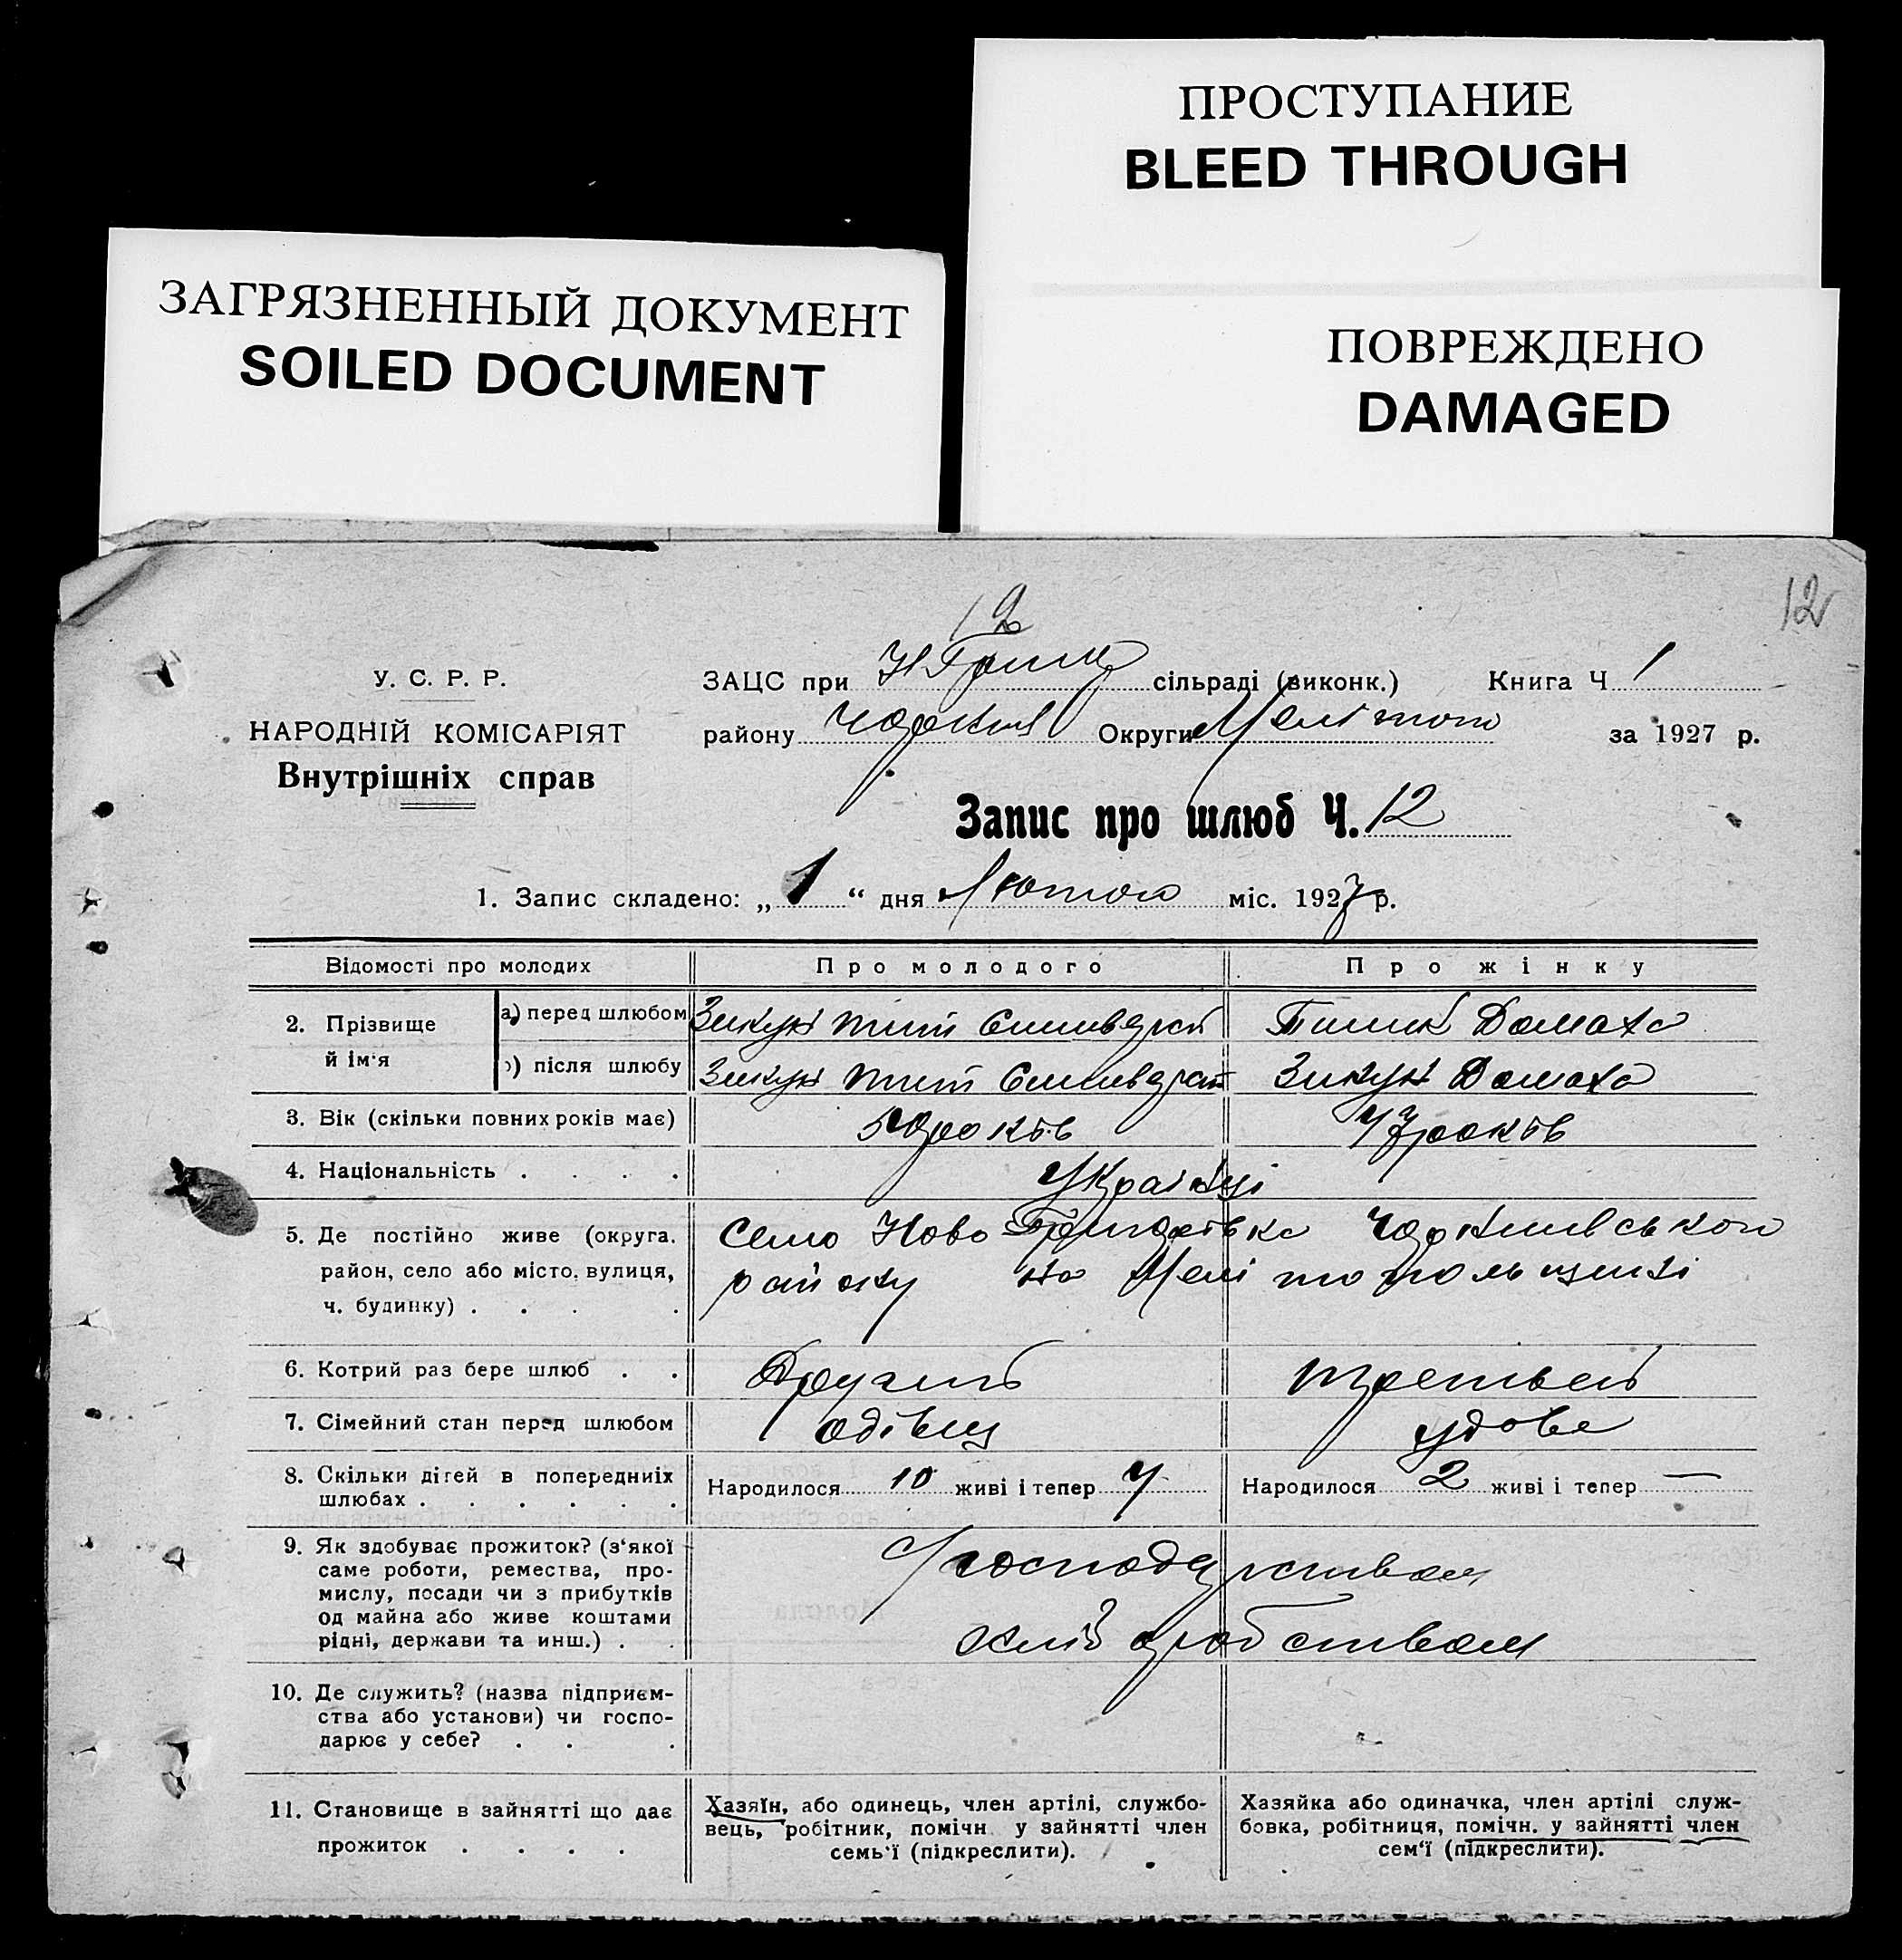 ПРОСТУПАНИЕ
BLEED THROUGH
ЗАГРЯЗНЕННЫЙ ДОКУМЕНТ
SOILED DOCUMENT
ПОВРЕЖДЕНО
DAMAGED
12
12
У. С. Р. Р.
НАРОДНІЙ КОМІСАРІЯТ
Внутрішніх справ
ЗАЦС при сільраді (виконк.) Книга Ч 1
району Округи Мелітоп за 1927 р.
Запис про шлюб Ч. 12
1. Запис складено: „ 1 “ дня Лютого міс. 1927 р.
Відомості про молодих Про молодого Про жінку
2. Прізвище й ім‘я
а) перед шлюбом Зикун Тит Домаха
б) після шлюбу Зикун Тит Зикун Домаха
3. Вік (скільки повних років має) років 47 років
4. Національність . . . . Українці
5. Де постійно живе (округа, Село Ново
район, село або місто, вулиця, району на Мелітопольщині
ч. будинку) . . . .
6. Котрий раз бере шлюб . . Другий третьей
7. Сімейний стан перед шлюбом удова
8. Скільки дітей в попередніх Народилося 10 живі і тепер Народилося 2 живі і тепер —
шлюбах . . . . . .
9. Як здобуває прожиток? (з‘якої
саме роботи, ремества, про-
мислу, посади чи з прибутків
од майна або живе коштами
рідні, держави та инш.) . .
господарством
хліборобством
10. Де служить? (назва підприєм-
ства або установи) чи госпо-
дарює у себе? . . .
11. Становище в зайнятті що дає
прожиток . . . .
Хазяїн, або одинець, член артілі, службо-
вець, робітник, помічн. у зайнятті член
семь‘ї (підкреслити).
Хазяйка або одиначка, член артілі служ-
бовка, робітниця, помічн. у зайнятті член
сем‘ї (підкреслити).